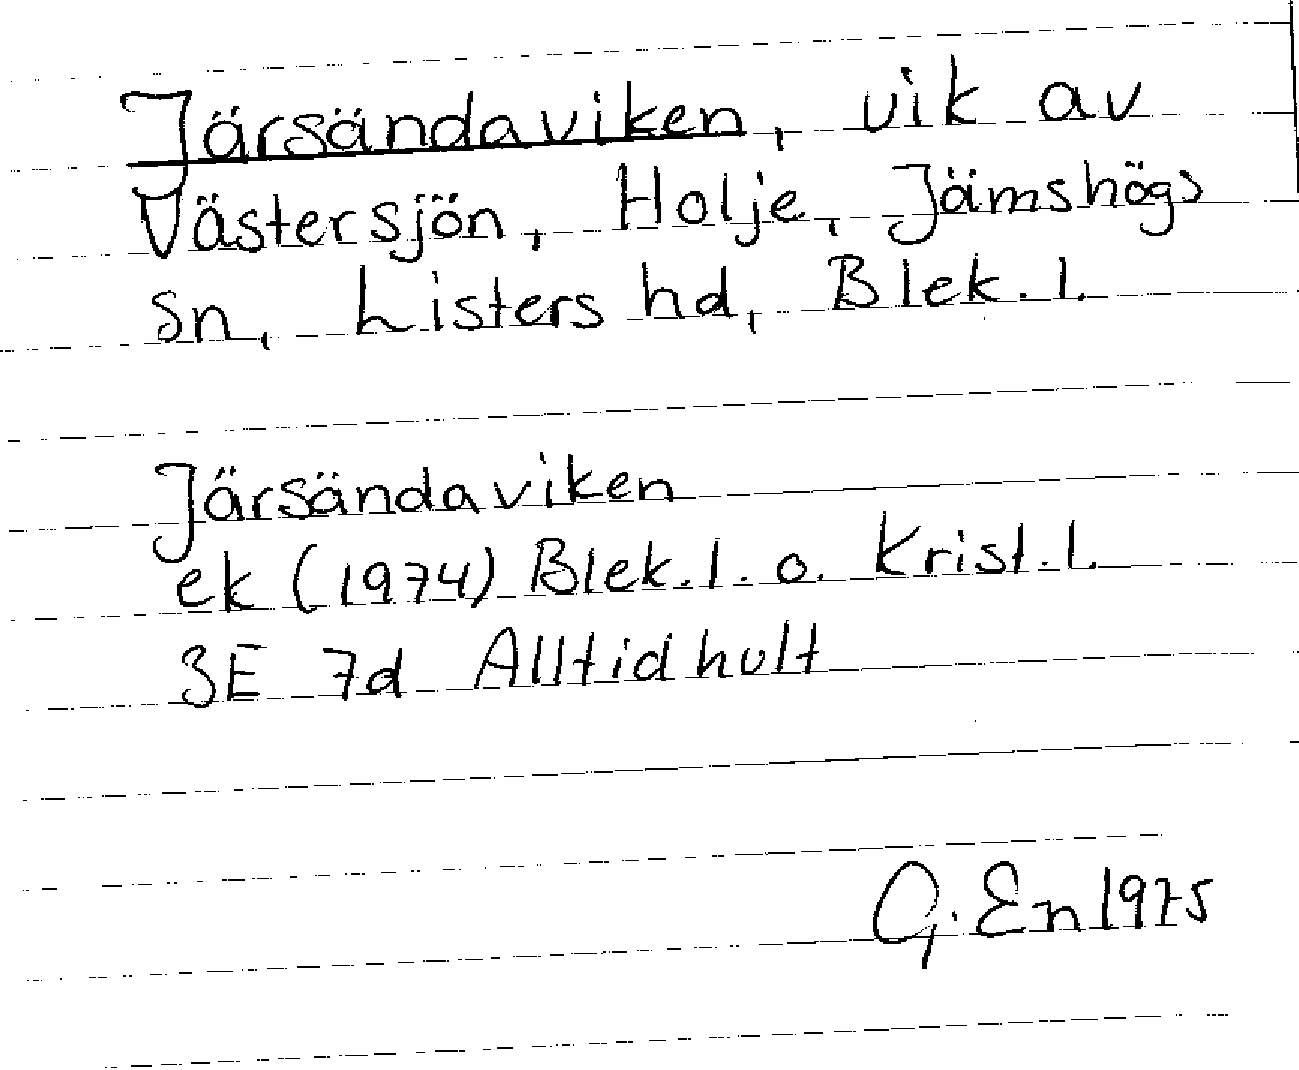 Järsändaviken, vik av
Västersjön, Holje, Jämshögs
sn, Listers hd, Blek. l.
Järsändaviken
ek (1974) Blek. l. o. Krist. l.
3E 7d Alltidhult
G. En 1975